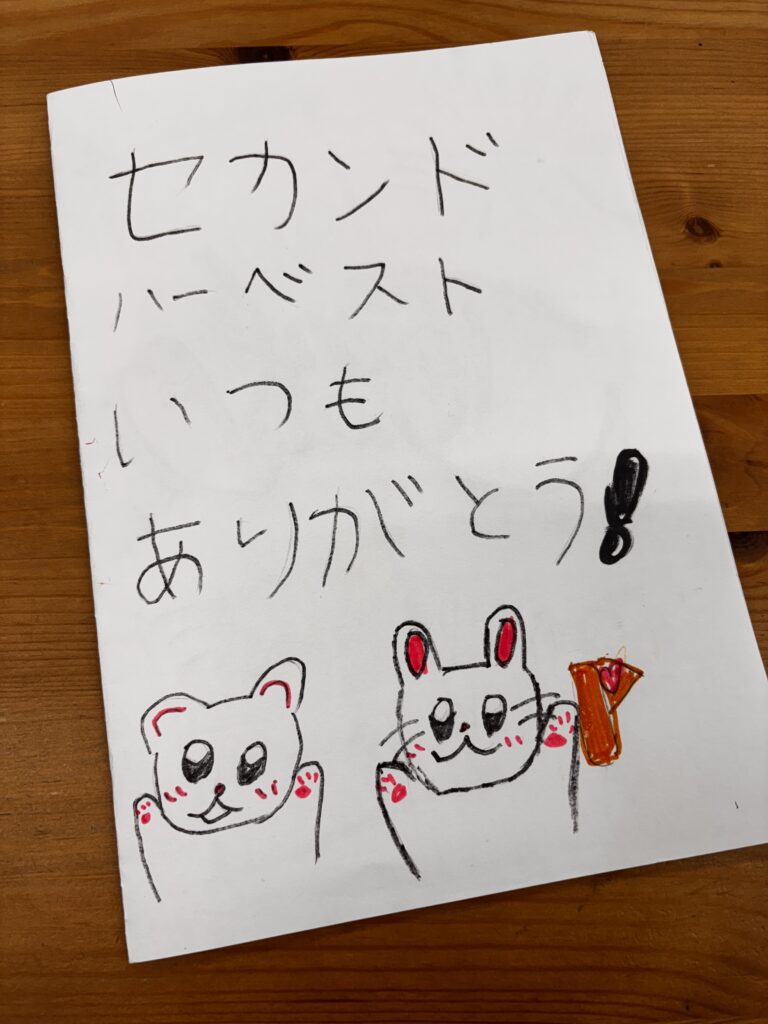 セカンド
ハーベスト
いつも
ありがとう!